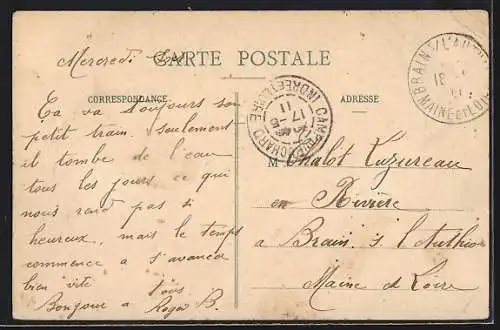 Mercredi soir
CARTE POSTALE
CORRESPONDANCE
ADRESSE
BRAIN S/L'AUTHION
MAINE-ET-LOIRE
INDRE ET LOIRE
17-5
11
Ça va toujours son
petit train. seulement
il tombe de l'eau
tous les jours ce qui
nous rend pas si
heureux, mais le temps
commence a s'avancer
bien vite
Bonjour a tous
Roger B.
M Chalot Luzureau
en Rivière
a Brain. s. l'Authion
Maine et Loire